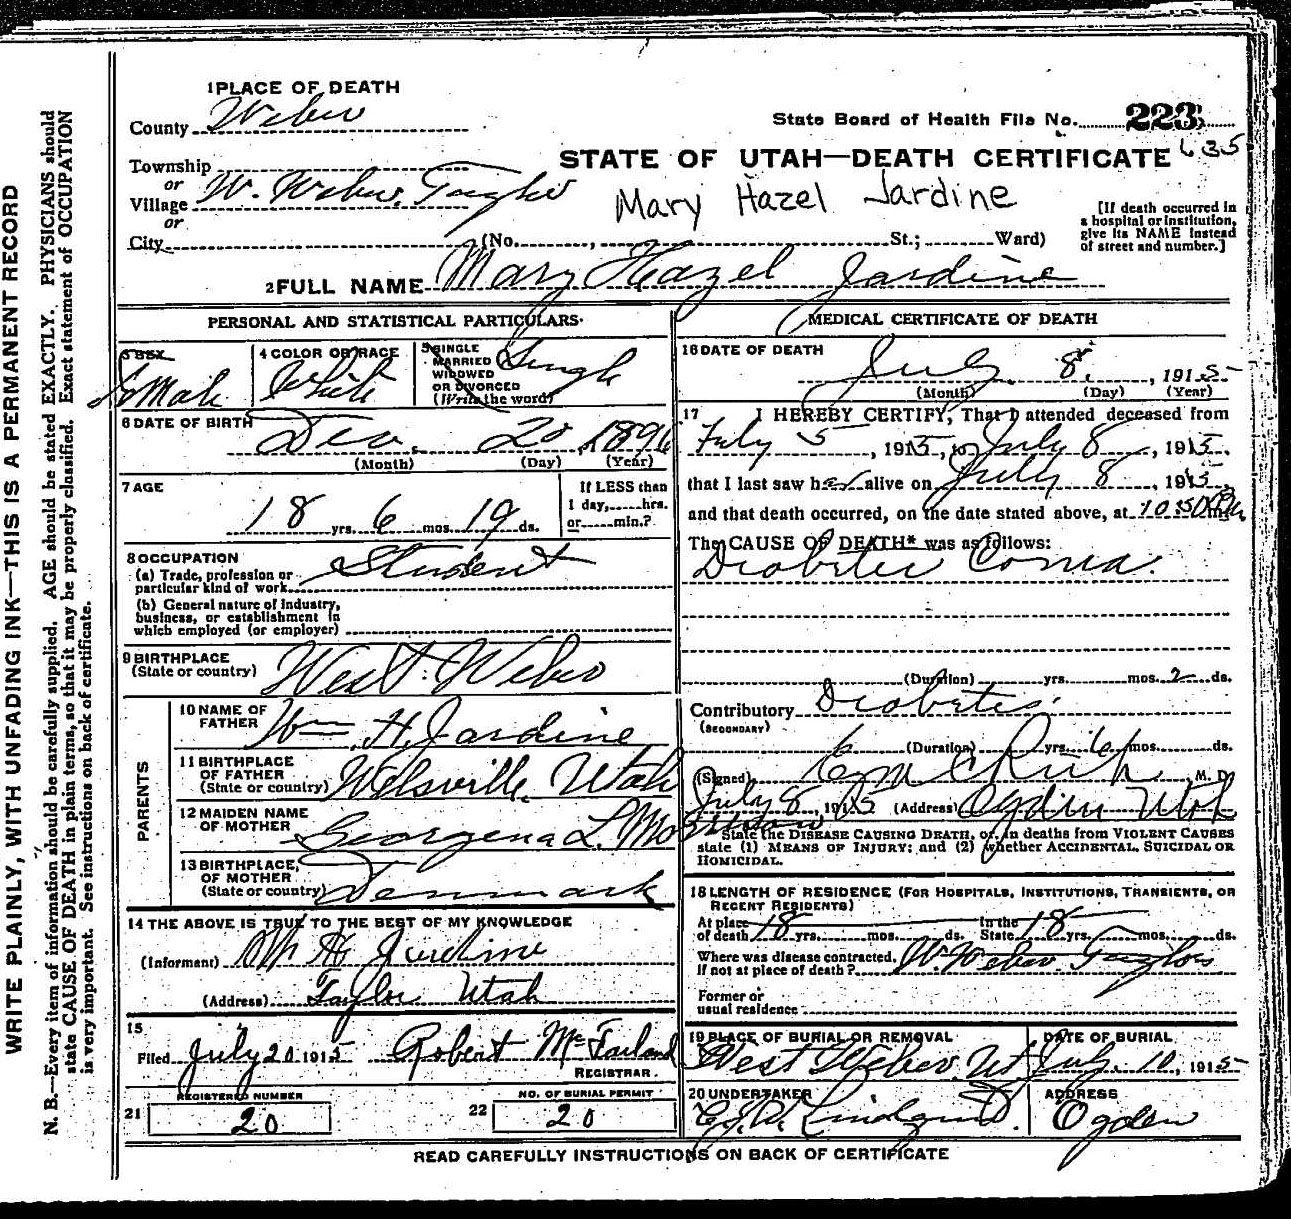 1 PLACE OF DEATH
County Weber
State Board of Health File No. 223
635
STATE OF UTAH—DEATH CERTIFICATE
Township
or
Village W. Weber, Taylor
or
City (No. , St.; Ward)
Mary Hazel Jardine
[If death occurred in
a hospital or institution,
give its NAME instead
of street and number.]
2 FULL NAME Mary Hazel Jardine
PERSONAL AND STATISTICAL PARTICULARS
3 SEX
Female
4 COLOR OR RACE
White
5 SINGLE
MARRIED
WIDOWED
OR DIVORCED
(Write the word)
Single
6 DATE OF BIRTH
Dec. 20, 1896
(Month) (Day) (Year)
7 AGE
18 yrs. 6 mos. 19 ds.
If LESS than
1 day, hrs.
or min.?
8 OCCUPATION
(a) Trade, profession or
particular kind of work Student
(b) General nature of industry,
business, or establishment in
which employed (or employer)
9 BIRTHPLACE
(State or country) West Weber
PARENTS
10 NAME OF
FATHER Wm. H. Jardine
11 BIRTHPLACE
OF FATHER
(State or country) Wellsville, Utah
12 MAIDEN NAME
OF MOTHER Georgena L.
13 BIRTHPLACE,
OF MOTHER
(State or country) Denmark
14 THE ABOVE IS TRUE TO THE BEST OF MY KNOWLEDGE
(Informant) Wm H Jardine
(Address) Taylor Utah
15
Filed July 20 1915 Robert McFarland
REGISTRAR.
REGISTERED NUMBER
21 20
NO. OF BURIAL PERMIT
22 20
MEDICAL CERTIFICATE OF DEATH
16 DATE OF DEATH
July 8, 1915
(Month) (Day) (Year)
17 I HEREBY CERTIFY, That I attended deceased from
July 5, 1915, to July 8, 1915,
that I last saw her alive on July 8, 1915,
and that death occurred, on the date stated above, at
The CAUSE OF DEATH* was as follows:
Diabetic Coma.
(Duration) yrs. mos. 2 ds.
Contributory Diabetes
(SECONDARY)
(Duration) yrs. 6 mos. ds.
(Signed) Rich, M. D.
July 8, 1915 (Address) Ogden Utah
State the DISEASE CAUSING DEATH, or, in deaths from VIOLENT CAUSES
state (1) MEANS OF INJURY; and (2) whether ACCIDENTAL, SUICIDAL OR
HOMICIDAL.
18 LENGTH OF RESIDENCE (FOR HOSPITALS, INSTITUTIONS, TRANSIENTS, OR
RECENT RESIDENTS)
At place
of death 18 yrs. mos. ds.
In the
State 18 yrs. mos. ds.
Where was disease contracted,
if not at place of death? W. Weber Taylor
Former or
usual residence
19 PLACE OF BURIAL OR REMOVAL
West Weber Ut
DATE OF BURIAL
July 10, 1915
20 UNDERTAKER
Lindquist
ADDRESS
Ogden
READ CAREFULLY INSTRUCTIONS ON BACK OF CERTIFICATE
WRITE PLAINLY, WITH UNFADING INK—THIS IS A PERMANENT RECORD
N. B.—Every item of information should be carefully supplied. AGE should be stated EXACTLY. PHYSICIANS should
state CAUSE OF DEATH in plain terms, so that it may be properly classified. Exact statement of OCCUPATION
is very important. See instructions on back of certificate.